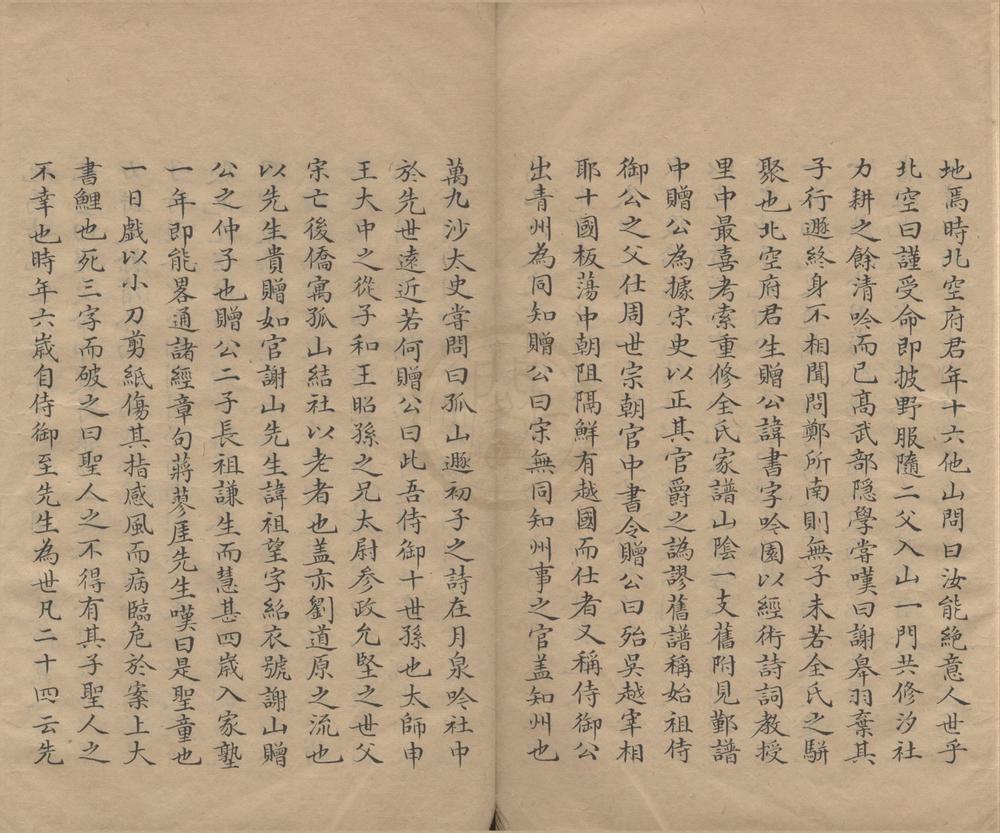 地焉時北空府君年十六他山問曰汝能絶意人世乎
北空曰謹受命即披野服隨二父入山一門共修汐社
力耕之餘清吟而已高武部隠學嘗嘆曰謝皋羽棄其
子行遯終身不相聞問鄭所南則無子未若全氏之駢
聚也北空府君生贈公諱書字吟園以經術詩詞教授
里中最喜考索重修全氏家譜山陰一支舊附見鄞譜
中贈公為據宋史以正其官爵之譌謬舊譜稱始祖侍
御公之父仕周世宗朝官中書令贈公曰殆吳越宰相
耶十國板蕩中朝阻隔鮮有越國而仕者又稱侍御公
出青州為同知贈公曰宋無同知州事之官盖知州也
萬九沙太史嘗問曰孤山遯初子之詩在月泉吟社中
於先世遠近若何贈公曰此吾侍御十世孫也太師申
王大中之從子和王昭孫之兄太尉参政允堅之世父
宋亡後僑寓孤山結社以老者也盖亦劉道原之流也
以先生貴贈如官謝山先生諱祖望字紹衣號謝山贈
公之仲子也贈公二子長祖謙生而慧甚四歲入家塾
一年即能畧通諸經章句蔣蓼厓先生嘆曰是聖童也
一日戲以小刀剪紙傷其指感風而病臨危於案上大
書鯉也死三字而破之曰聖人之不得有其子聖人之
不幸也時年六歲自侍御至先生為世凡二十四云先